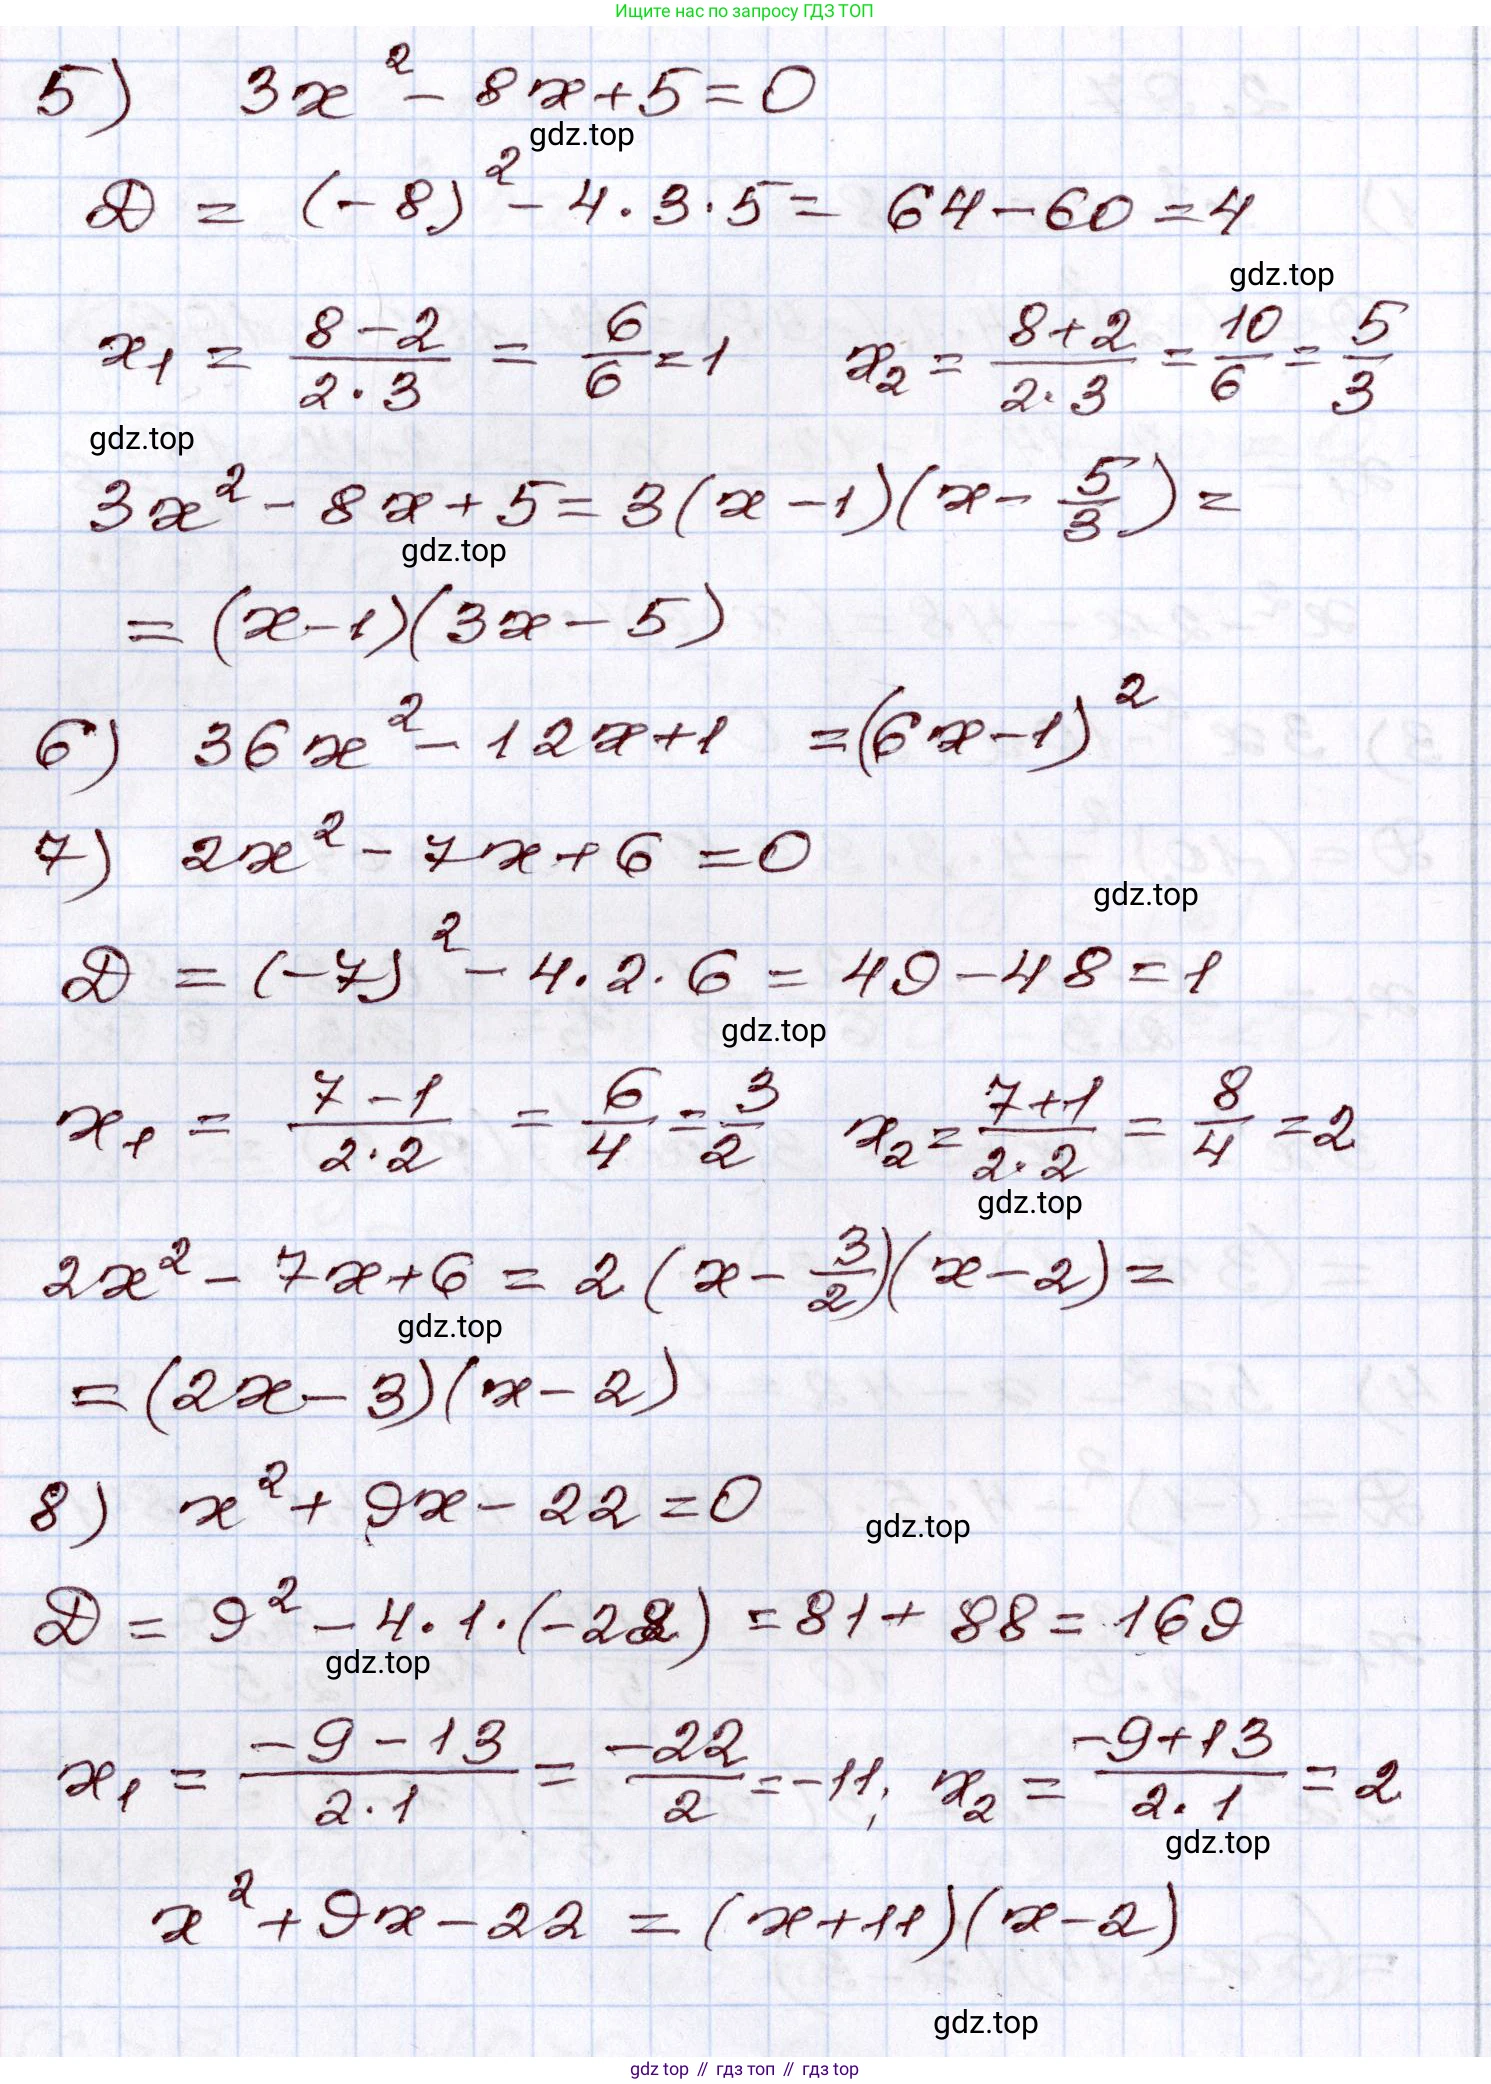 Ищите нас по запросу ГДЗ ТОП
5) 3x² - 8x + 5 = 0
gdz.top
D = (-8)² - 4 · 3 · 5 = 64 - 60 = 4
gdz.top
x₁ = (8 - 2)/(2 · 3) = 6/6 = 1 x₂ = (8 + 2)/(2 · 3) = 10/6 = 5/3
gdz.top
3x² - 8x + 5 = 3(x - 1)(x - 5/3) =
gdz.top
= (x - 1)(3x - 5)
6) 36x² - 12x + 1 = (6x - 1)²
7) 2x² - 7x + 6 = 0
gdz.top
D = (-7)² - 4 · 2 · 6 = 49 - 48 = 1
gdz.top
x₁ = (7 - 1)/(2 · 2) = 6/4 = 3/2 x₂ = (7 + 1)/(2 · 2) = 8/4 = 2
gdz.top
2x² - 7x + 6 = 2(x - 3/2)(x - 2) =
gdz.top
= (2x - 3)(x - 2)
8) x² + 9x - 22 = 0
gdz.top
D = 9² - 4 · 1 · (-22) = 81 + 88 = 169
gdz.top
x₁ = (-9 - 13)/(2 · 1) = -22/2 = -11; x₂ = (-9 + 13)/(2 · 1) = 2
gdz.top
x² + 9x - 22 = (x + 11)(x - 2)
gdz.top
gdz top // гдз топ // гдз top